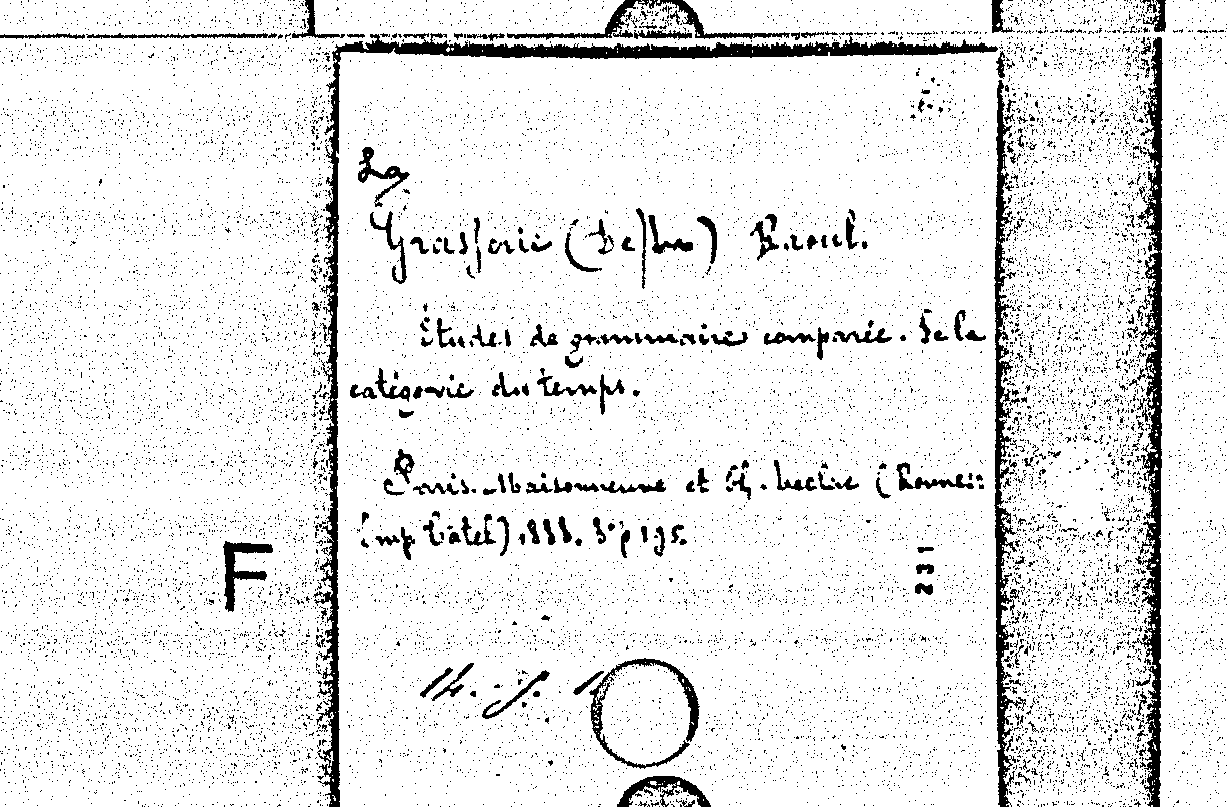 La
Grasserie (De la) Raoul.
Études de grammaire comparée. De la
catégorie du temps.
Paris. Maisonneuve et Ch. Leclerc (Rennes:
Imp Catel) 1888. 8° p 195.
F
231
14. J.